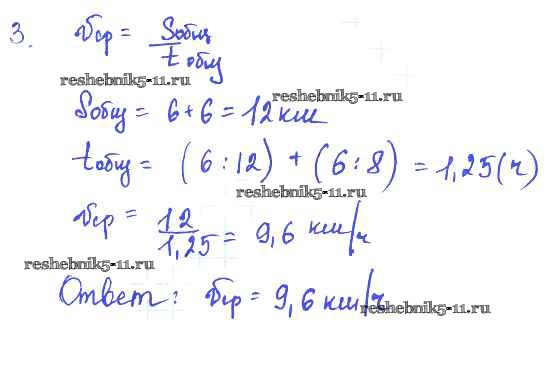 3. Vср = Sобщ / tобщ
reshebnik5-11.ru
reshebnik5-11.ru
Sобщ = 6 + 6 = 12 км
tобщ = (6 : 12) + (6 : 8) = 1,25 (ч)
reshebnik5-11.ru
Vср = 12 / 1,25 = 9,6 км/ч
reshebnik5-11.ru
Ответ: Vср = 9,6 км/ч
reshebnik5-11.ru